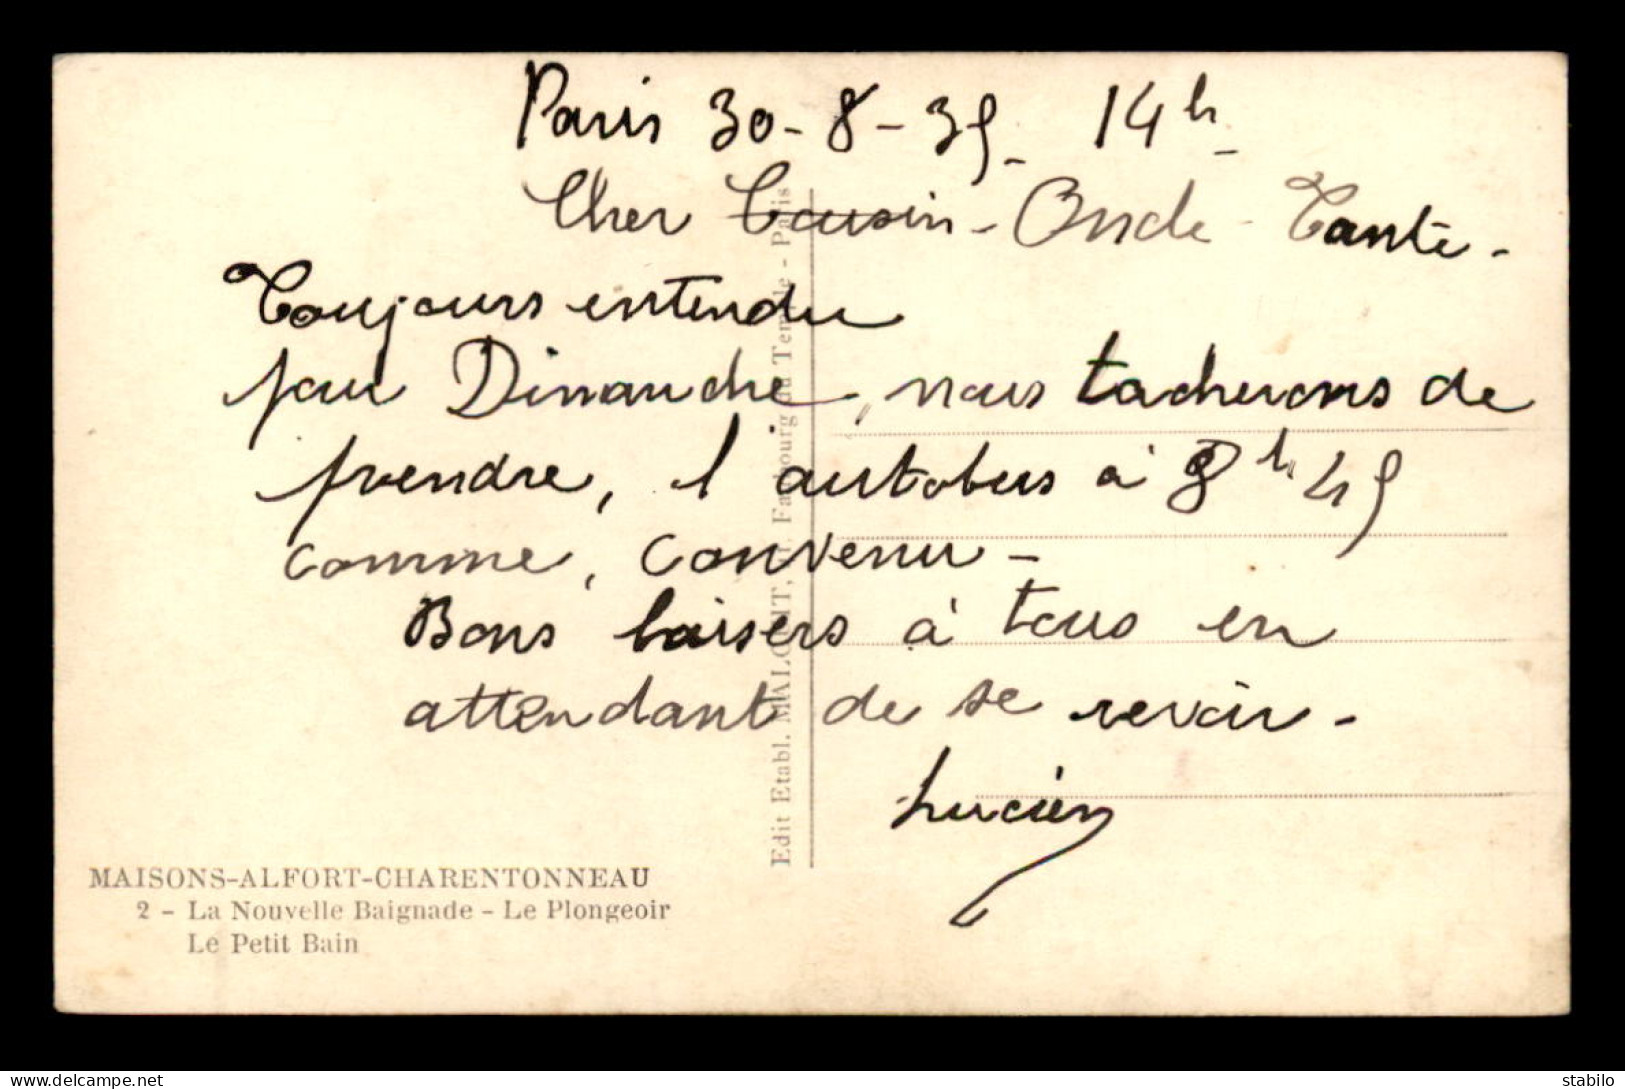 Paris 30-8-35- 14h-
Cher Cousin - Oncle - Tante -
Toujours entendu
pour Dimanche, nous tacherons de
prendre, l autobus à 8h 45
comme, convenu -
Bons baisers à tous en
attendant de se revoir -
Lucien
Edit Etabl. MALCUIT, Faubourg du Temple - Paris
MAISONS-ALFORT-CHARENTONNEAU
2 - La Nouvelle Baignade - Le Plongeoir
Le Petit Bain
delcampe.net
stabilo